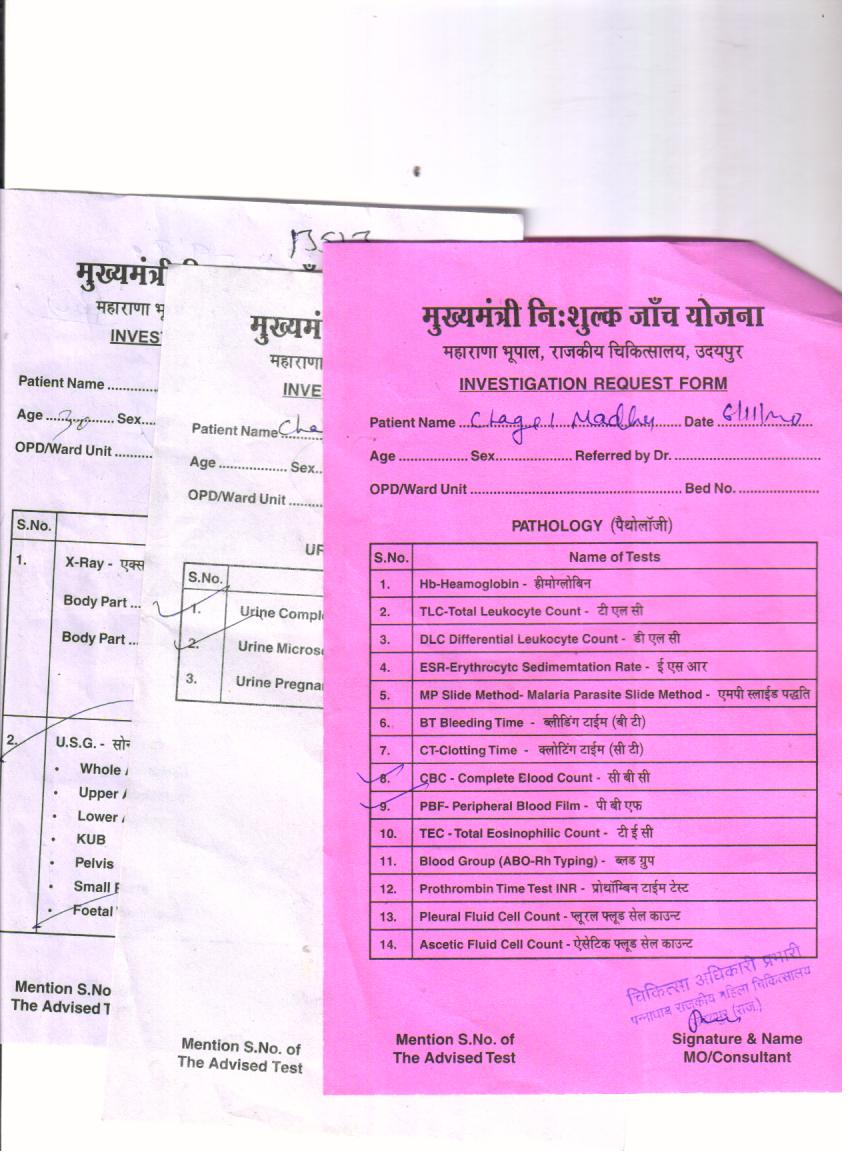 मुख्यमंत्री
महाराणा भू
INVES
Patient Name
Age 30 Sex
OPD/Ward Unit
S.No.
1. X-Ray - एक्स
Body Part
Body Part
2. U.S.G. - सोन
• Whole
• Upper
• Lower
• KUB
• Pelvis
• Small
• Foetal
Mention S.No
The Advised T
मुख्यमं
महाराणा
INVE
Patient Name Cha
Age Sex
OPD/Ward Unit
UR
S.No.
1. Urine Compl
2. Urine Micros
3. Urine Pregna
Mention S.No. of
The Advised Test
मुख्यमंत्री निःशुल्क जाँच योजना
महाराणा भूपाल, राजकीय चिकित्सालय, उदयपुर
INVESTIGATION REQUEST FORM
Patient Name Madhu Date 6/11/20
Age Sex Referred by Dr.
OPD/Ward Unit Bed No.
PATHOLOGY (पैथोलॉजी)
S.No. Name of Tests
1. Hb-Heamoglobin - हीमोग्लोबिन
2. TLC-Total Leukocyte Count - टी एल सी
3. DLC Differential Leukocyte Count - डी एल सी
4. ESR-Erythrocytc Sedimemtation Rate - ई एस आर
5. MP Slide Method- Malaria Parasite Slide Method - एमपी स्लाईड पद्धति
6. BT Bleeding Time - ब्लीडिंग टाईम (बी टी)
7. CT-Clotting Time - क्लोटिंग टाईम (सी टी)
8. CBC - Complete Elood Count - सी बी सी
9. PBF- Peripheral Blood Film - पी बी एफ
10. TEC - Total Eosinophilic Count - टी ई सी
11. Blood Group (ABO-Rh Typing) - ब्लड ग्रुप
12. Prothrombin Time Test INR - प्रोथॉम्बिन टाईम टेस्ट
13. Pleural Fluid Cell Count - प्लूरल फ्लूड सेल काउन्ट
14. Ascetic Fluid Cell Count - ऐसेटिक फ्लूड सेल काउन्ट
चिकित्सा अधिकारी प्रभारी
पन्नाधाय राजकीय महिला चिकित्सालय
(राज.)
Mention S.No. of
The Advised Test
Signature & Name
MO/Consultant